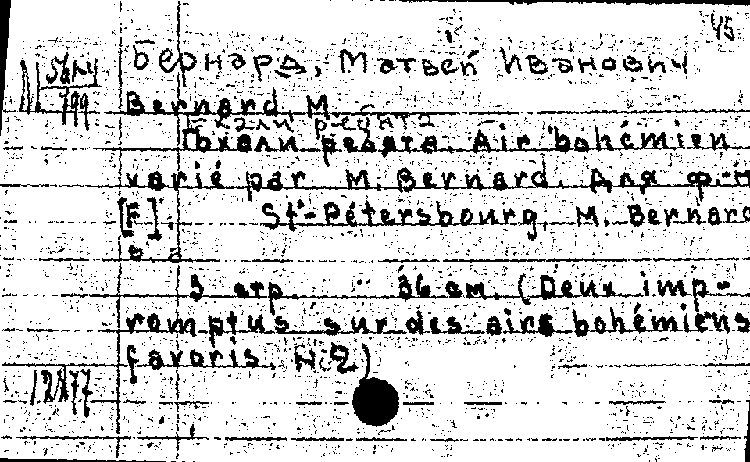 45
Бернард, Матвей Иванович
Bernard M.
Ехали ребята
Ехали ребята. Air bohémien
varié par M. Bernard. Для ф.-п
[F]. St-Pétersbourg, M. Bernard
3 стр. 36 см. (Deux imp-
romptus sur des airs bohémiens
favoris. N. 2)
12877